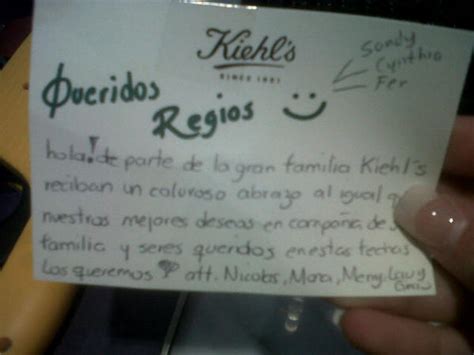 Kiehl's
SINCE 1851
Sandy
Cynthia
Fer
Queridos
Regios
hola! de parte de la gran familia Kiehl's
reciban un caluroso abrazo al igual q
nuestros mejores deseos en compañia de s
familia y seres queridos en estas fechas
Los queremos att. Nicolas, Mara, Meny,